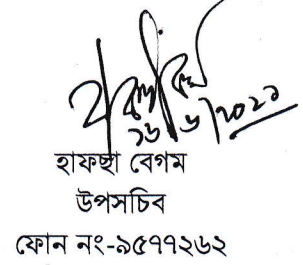 ১৬/৬/২০২১
হাফছা বেগম
উপসচিব
ফোন নং-৯৫৭৭২৬২